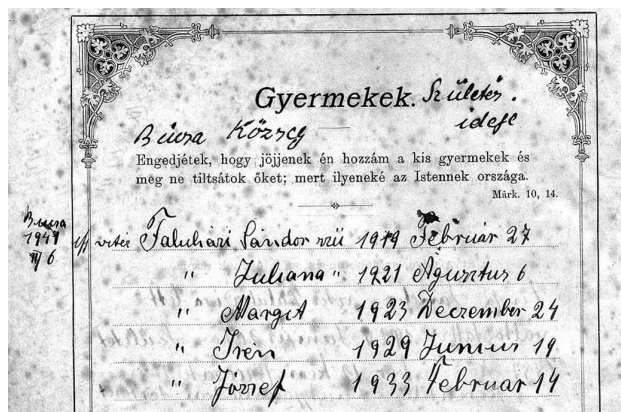 Gyermekek. Születés.
ideje
Bucsa Község
Engedjétek, hogy jöjjenek én hozzám a kis gyermekek és
meg ne tiltsátok őket; mert ilyeneké az Istennek országa.
Márk. 10, 14.
Bucsa
194
6
vitéz Faluházi Sándor szü 1919 Február 27
" Juliana " 1921 Agusztus 6
" Margit 1923 Deczember 24
" Irén 1929 Junius 19
" József 1933 Februar 14